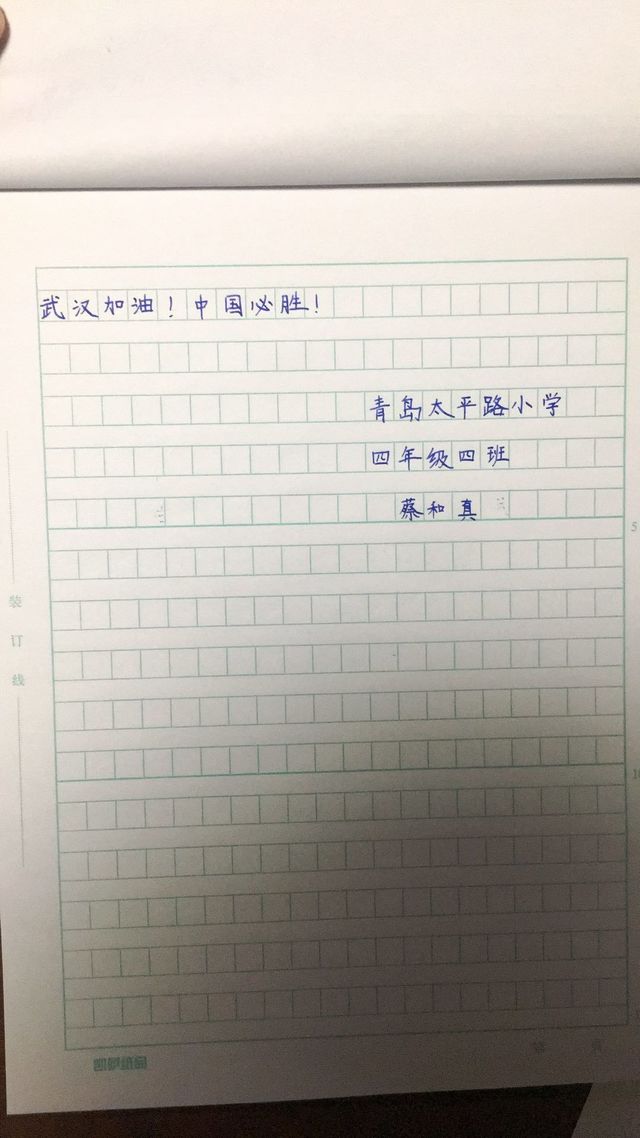 武汉加油！中国必胜！
青岛太平路小学
四年级四班
蔡和真
5
装订线
10